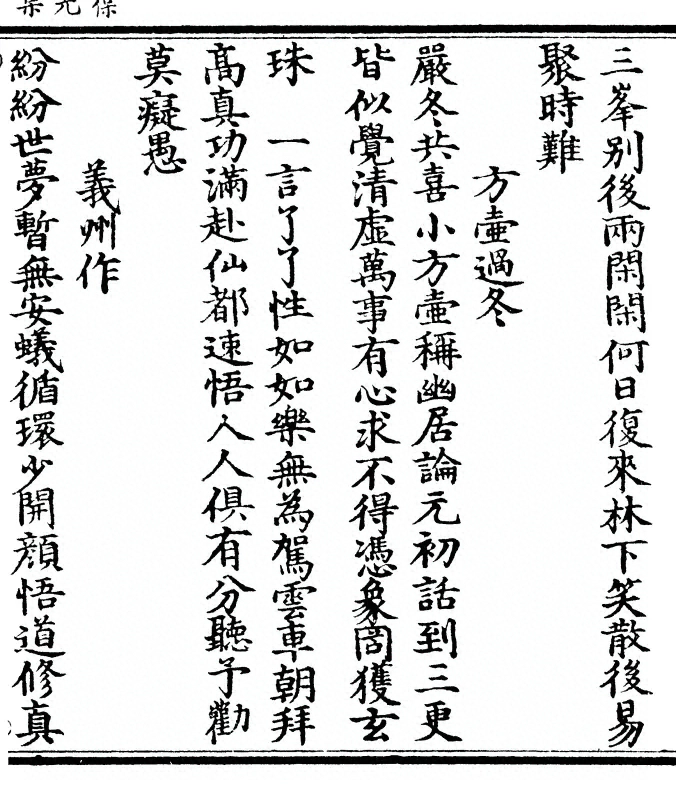 三峯別後兩閑閑何日復來林下笑散後易
聚時難
方壷過冬
嚴冬共喜小方壷稱幽居論元初話到三更
皆似覺清虚萬事有心求不得憑象罔獲玄
珠　一言了了性如如樂無為駕雲車朝拜
髙真功滿赴仙都速悟人人俱有分聽予勸
莫癡愚
義州作
紛紛世夢暫無安蟻循環少開顔悟道修真